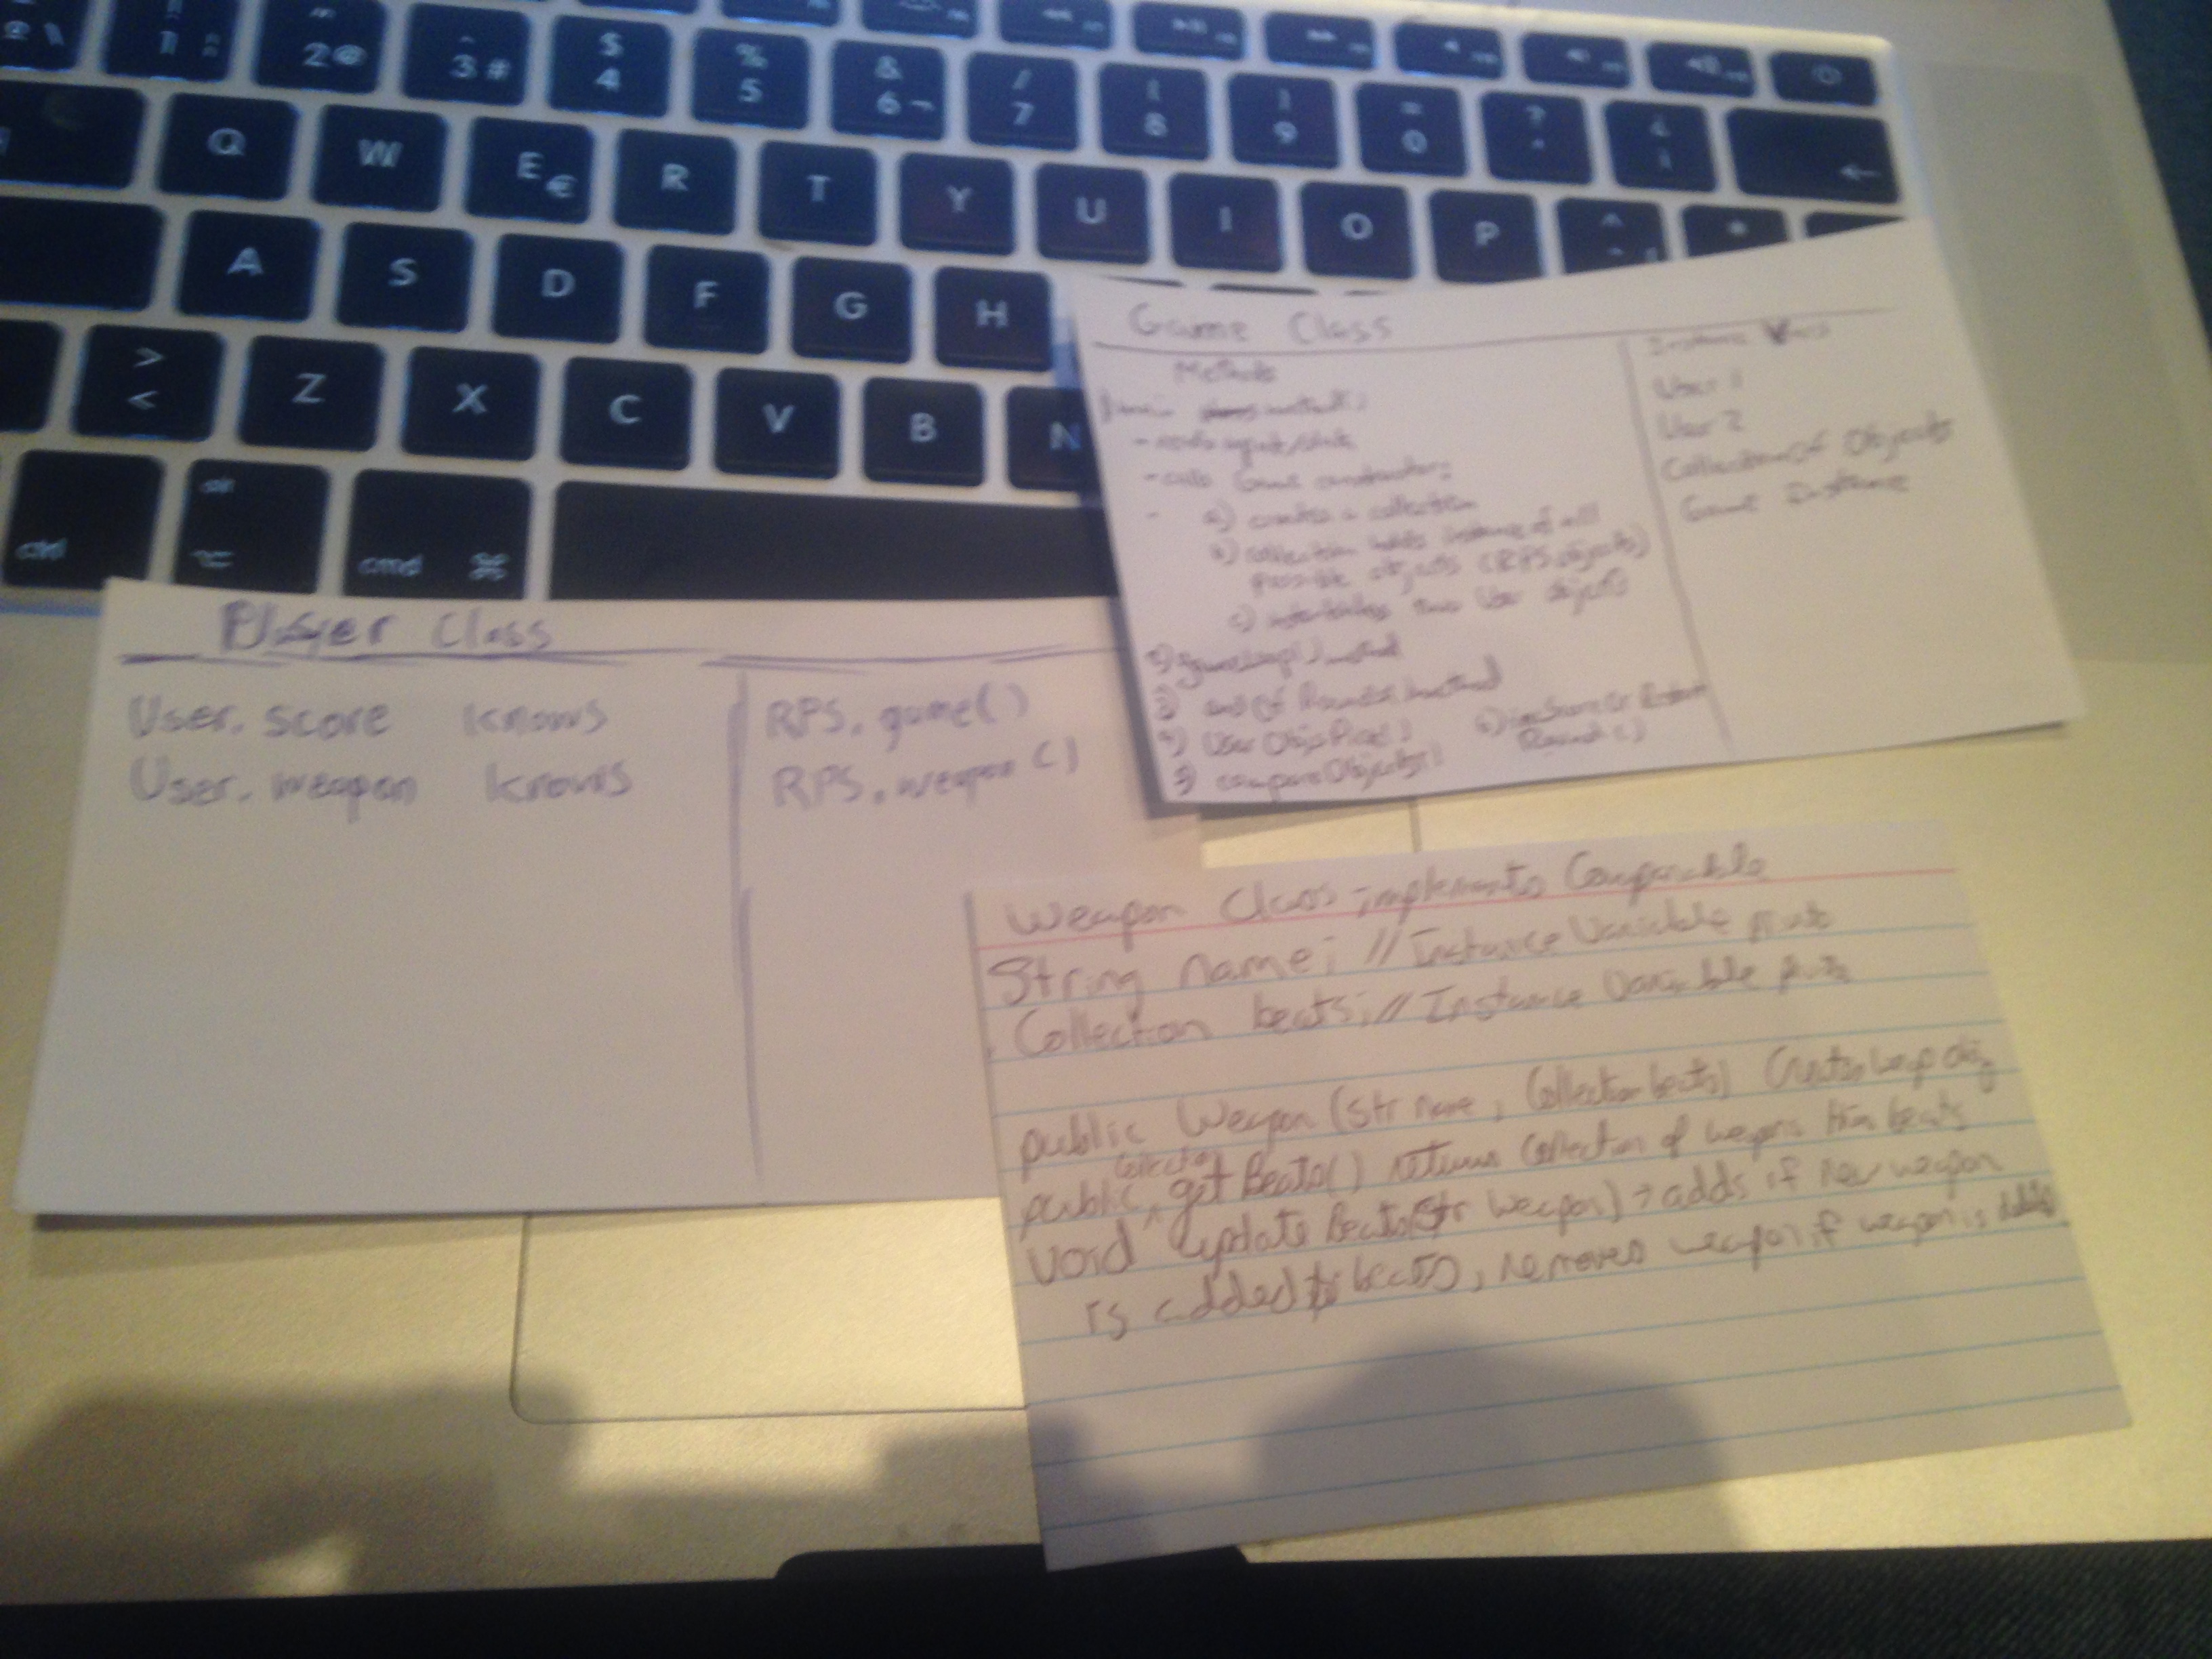 2 @
3 #
$ 4
% 5
& 6 ¬
/ 7
( 8
) 9
= 0
?
Q W E € R T Y U I O P
A S D F G H
> < Z X C V B N
ctrl
alt
cmd ⌘
Game Class
Methods
- calls Game constructor:
a) creates a collection
b) collection holds instance of all
possible objects (RPS objects)
c) two User objects
2) gameLoop() method
3) end Of Round() method
4) User Obj Pick()
5) compareObjects()
Round()
Instance Vars
User 1
User 2
Collection of Objects
Game Instance
Player Class
User. score knows
User. weapon knows
RPS. game()
RPS. weapon()
Weapon Class implements Comparable
String name; // Instance Variable
Collection beats; // Instance Variable
public Weapon (Str name, Collection beats) Creates
public Collection getBeats() returns Collection of weapons beats
void updateBeats(Str Weapon) → adds if new weapon
is added to beats, removes weapon if weapon is